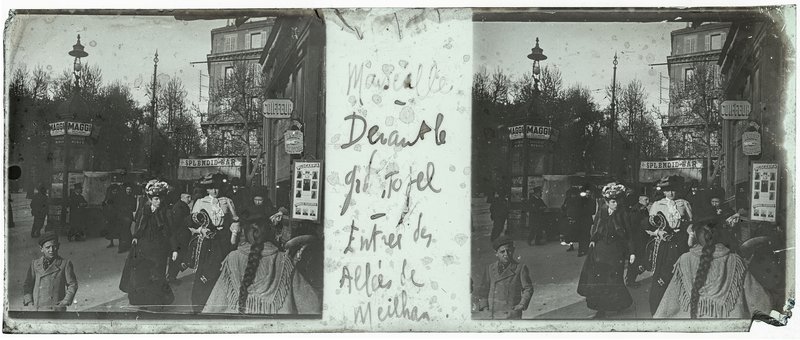 MAGGI MAGGI
COIFFEUR
SPLENDID-BAR
Marseille
Devant le
gd Hotel
Entrée des
Allées de
Meilhan
MAGGI MAGGI
COIFFEUR
SPLENDID-BAR